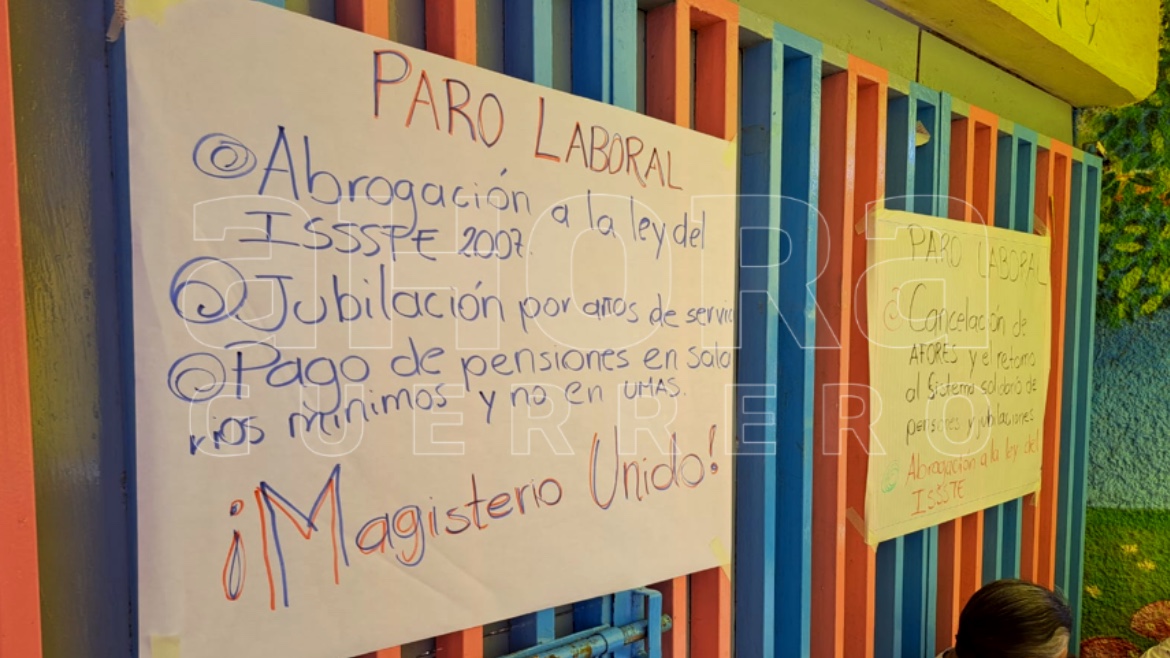 PARO LABORAL
Abrogación a la ley del
ISSSTE 2007.
Jubilación por años de servic
Pago de pensiones en sala
rios mínimos y no en UMAS.
¡Magisterio Unido!
PARO LABORAL
Cancelación de
AFORES y el retorno
al sistema solidario de
pensiones y jubilaciones
Abrogación a la ley del
ISSSTE
aHORa
GUERRERO